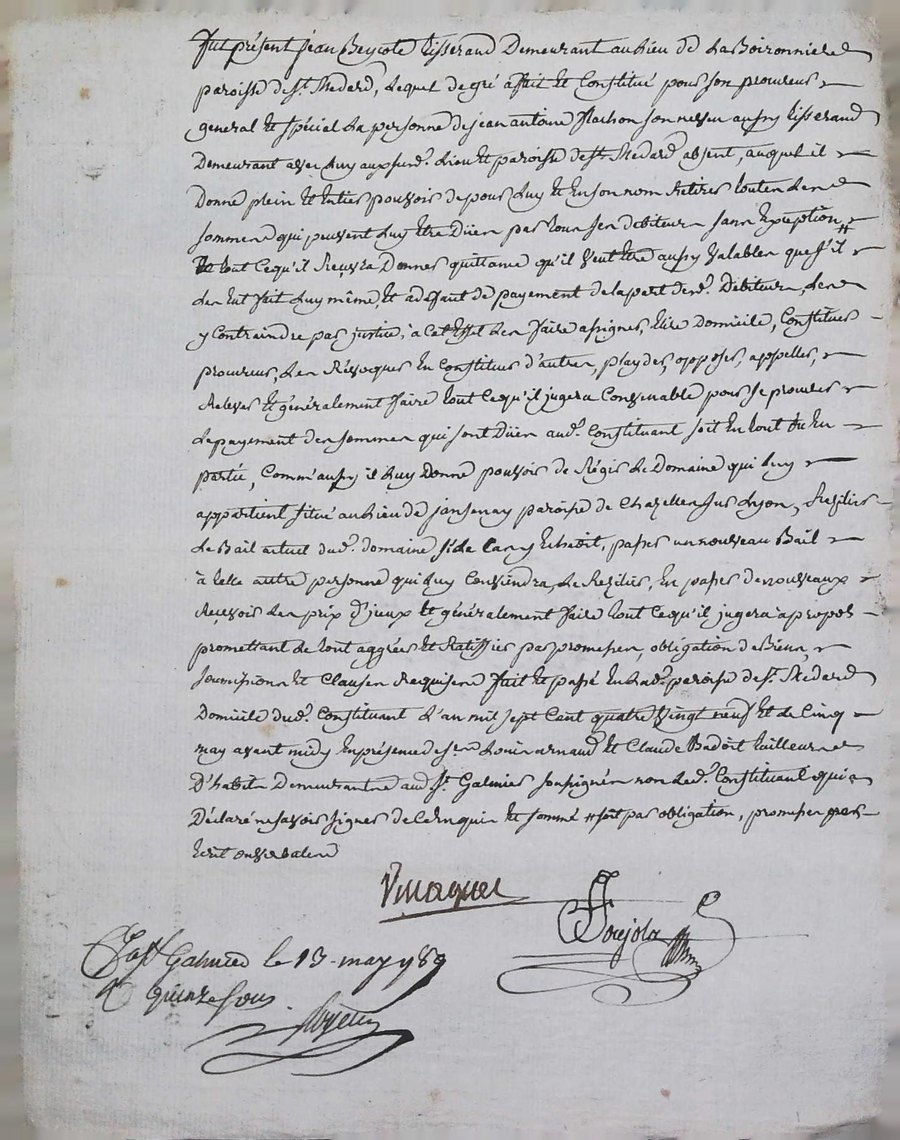 fut présent jean Beycote tisserand Demeurant au lieu de La Boironniere
paroisse de st. Medard, Lequel de gré a fait et Constitué pour son procureur
general et spécial La personne de jean antoine flachon son neveu aussy tisserand
Demeurant avec Luy aux surd. Lieu et paroisse de st. Medard absent, auquel il
Donne plein et Entier pouvoir de pour Luy et En son nom Retirer toutes Les
sommes qui peuvent Luy être Dües par tous ses debiteurs sans Exception, #
de tout Ce qu'il Recevra Donner quittance qu'il veut être aussy valables que s'il
Les eut fait Luy même, et a défaut de payement de la part desd. Débiteurs, Les
y Contraindre par justice, a Cet Effet Les faire assigner, Elire Domicile, Constituer
procureur, Les Révoquer En Constituer d'autres, playder, opposer, appeller,
Relever Et généralement faire tout Ce qu'il jugera Convenable pour se procurer
Le payement des sommes qui sont Düës aud. Constituant soit En tout ou En
partie, Comm'aussy il Luy Donne pouvoir de Régir Le Domaine qui Luy
appartient situé au Lieu de jansenay paroisse de Chazelles sur Lyon, Resilier
Le Bail actuel dud. domaine si le cas y Echoit, passer un nouveau Bail
à telle autre personne qui Luy Conviendra, Le Resilier, En passer de nouveaux
Recevoir Les prix d'jceux et généralement faire tout Ce qu'il jugera à propos
promettant de tout aggréer et Ratiffier par promesses, obligation de Biens,
soumissions et Clauses Requises fait et passé En lad. paroisse de st. Medard
Domicile dud. Constituant L'an mil sept Cent quatre vingt neuf et le Cinq
may avant midy En présence de srs. Louis arnaud et Claude Badoit tailleurs
D'habits Demeurants aud. st. Galmier soussignés non Led. Constituant qui a
Déclaré ne savoir signer de Ce Enquis et sommé # soit par obligation, promesses
Ecrit ou verbales
Soujola
Ct. a st. Galmier le 13 may 1789
R. quinze sous